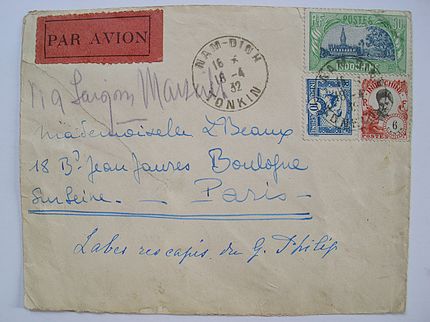 PAR AVION
NAM-DINH
16 *
18-4
32
TONKIN
POSTES
INDOCHINE
10
INDOCHINE
6
POSTES
Saigon Marseille
Mademoiselle L Beaux
18 Bd Jean Jaures Boulogne
Sur Seine - Paris -
du G. Philip